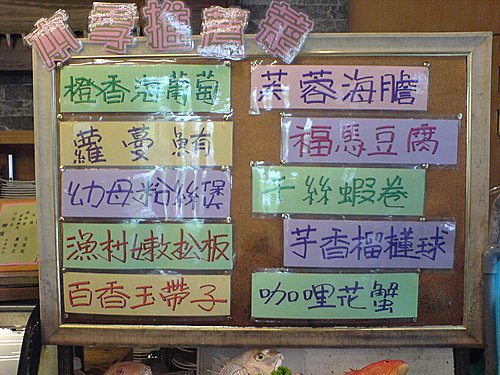 本亭推薦菜
橙香海葡萄
蘿蔓鮪
幼母粉絲煲
漁村嫩松板
百香玉帶子
芙蓉海膽
福馬豆腐
千絲蝦卷
芋香榴槤球
咖哩花蟹